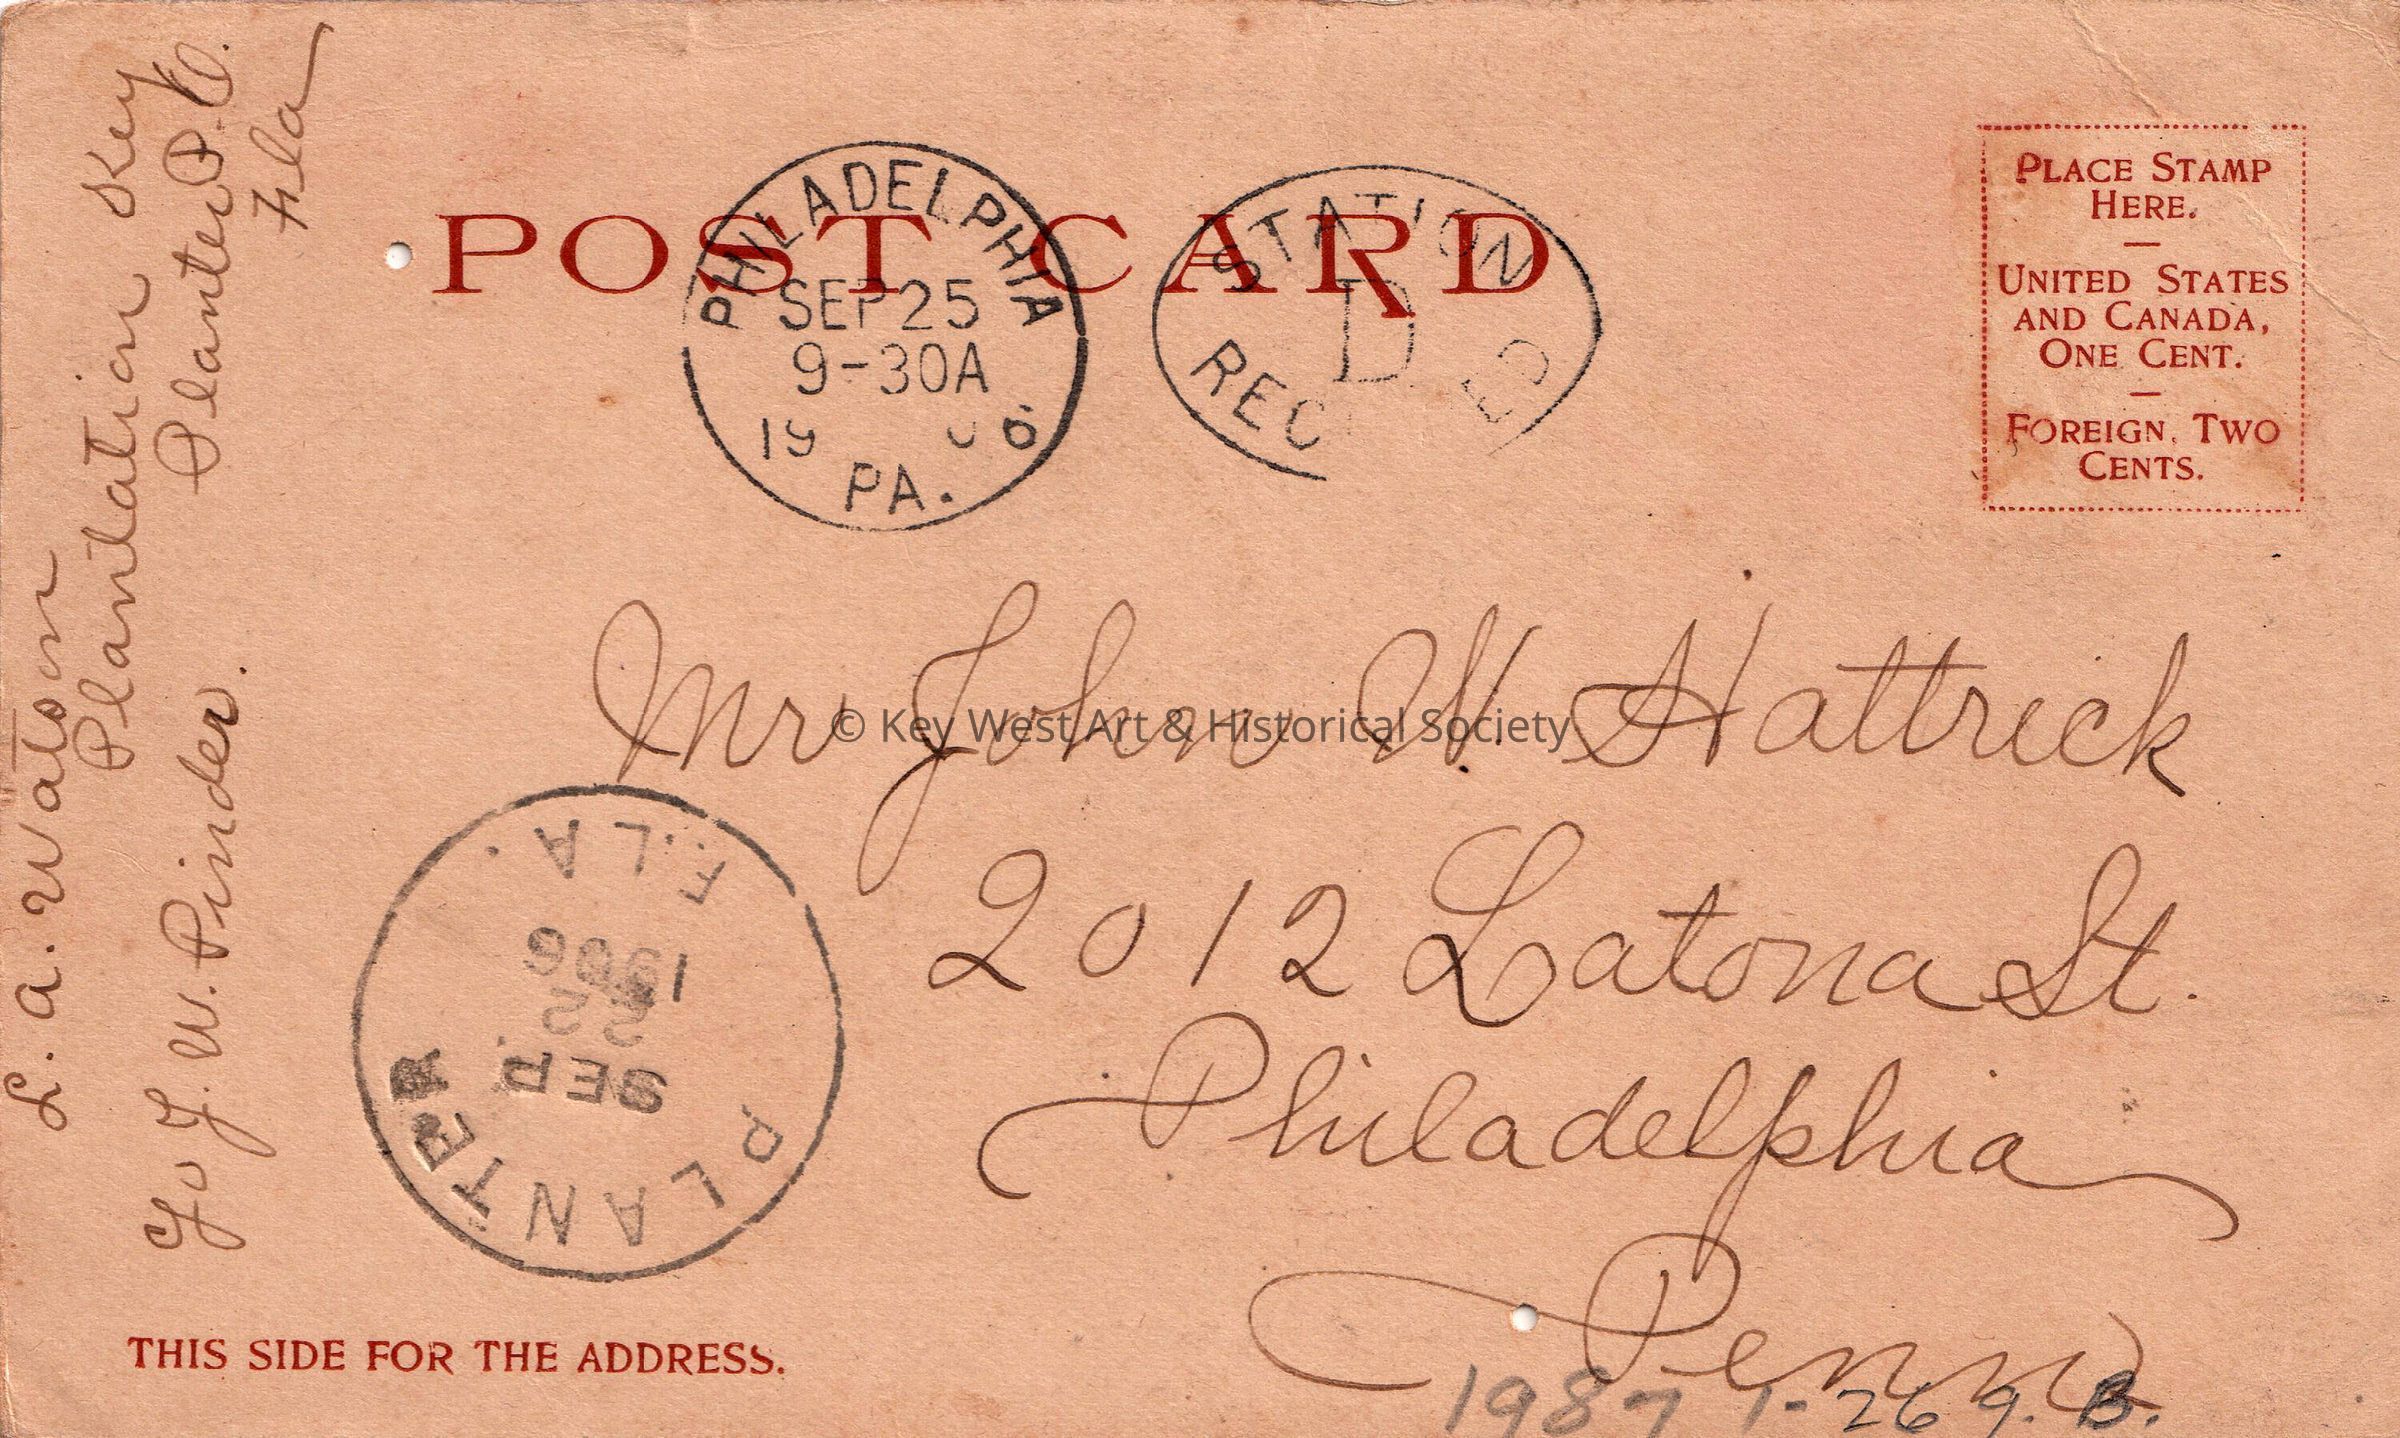 POST CARD
PHILADELPHIA
SEP 25
9-30A
PA.
STATION
D
PLACE STAMP
HERE.
UNITED STATES
AND CANADA,
ONE CENT.
FOREIGN, TWO
CENTS.
L. A. Watson
Planitation Key
Planter P.O.
Fla
J. W. Pinder.
Mr John W. Hattrick
2012 Latona St.
Philadelphia
Penna
PLANTER
SEP
22
1906
FLA.
© Key West Art & Historical Society
THIS SIDE FOR THE ADDRESS.
1987 1-269.B.